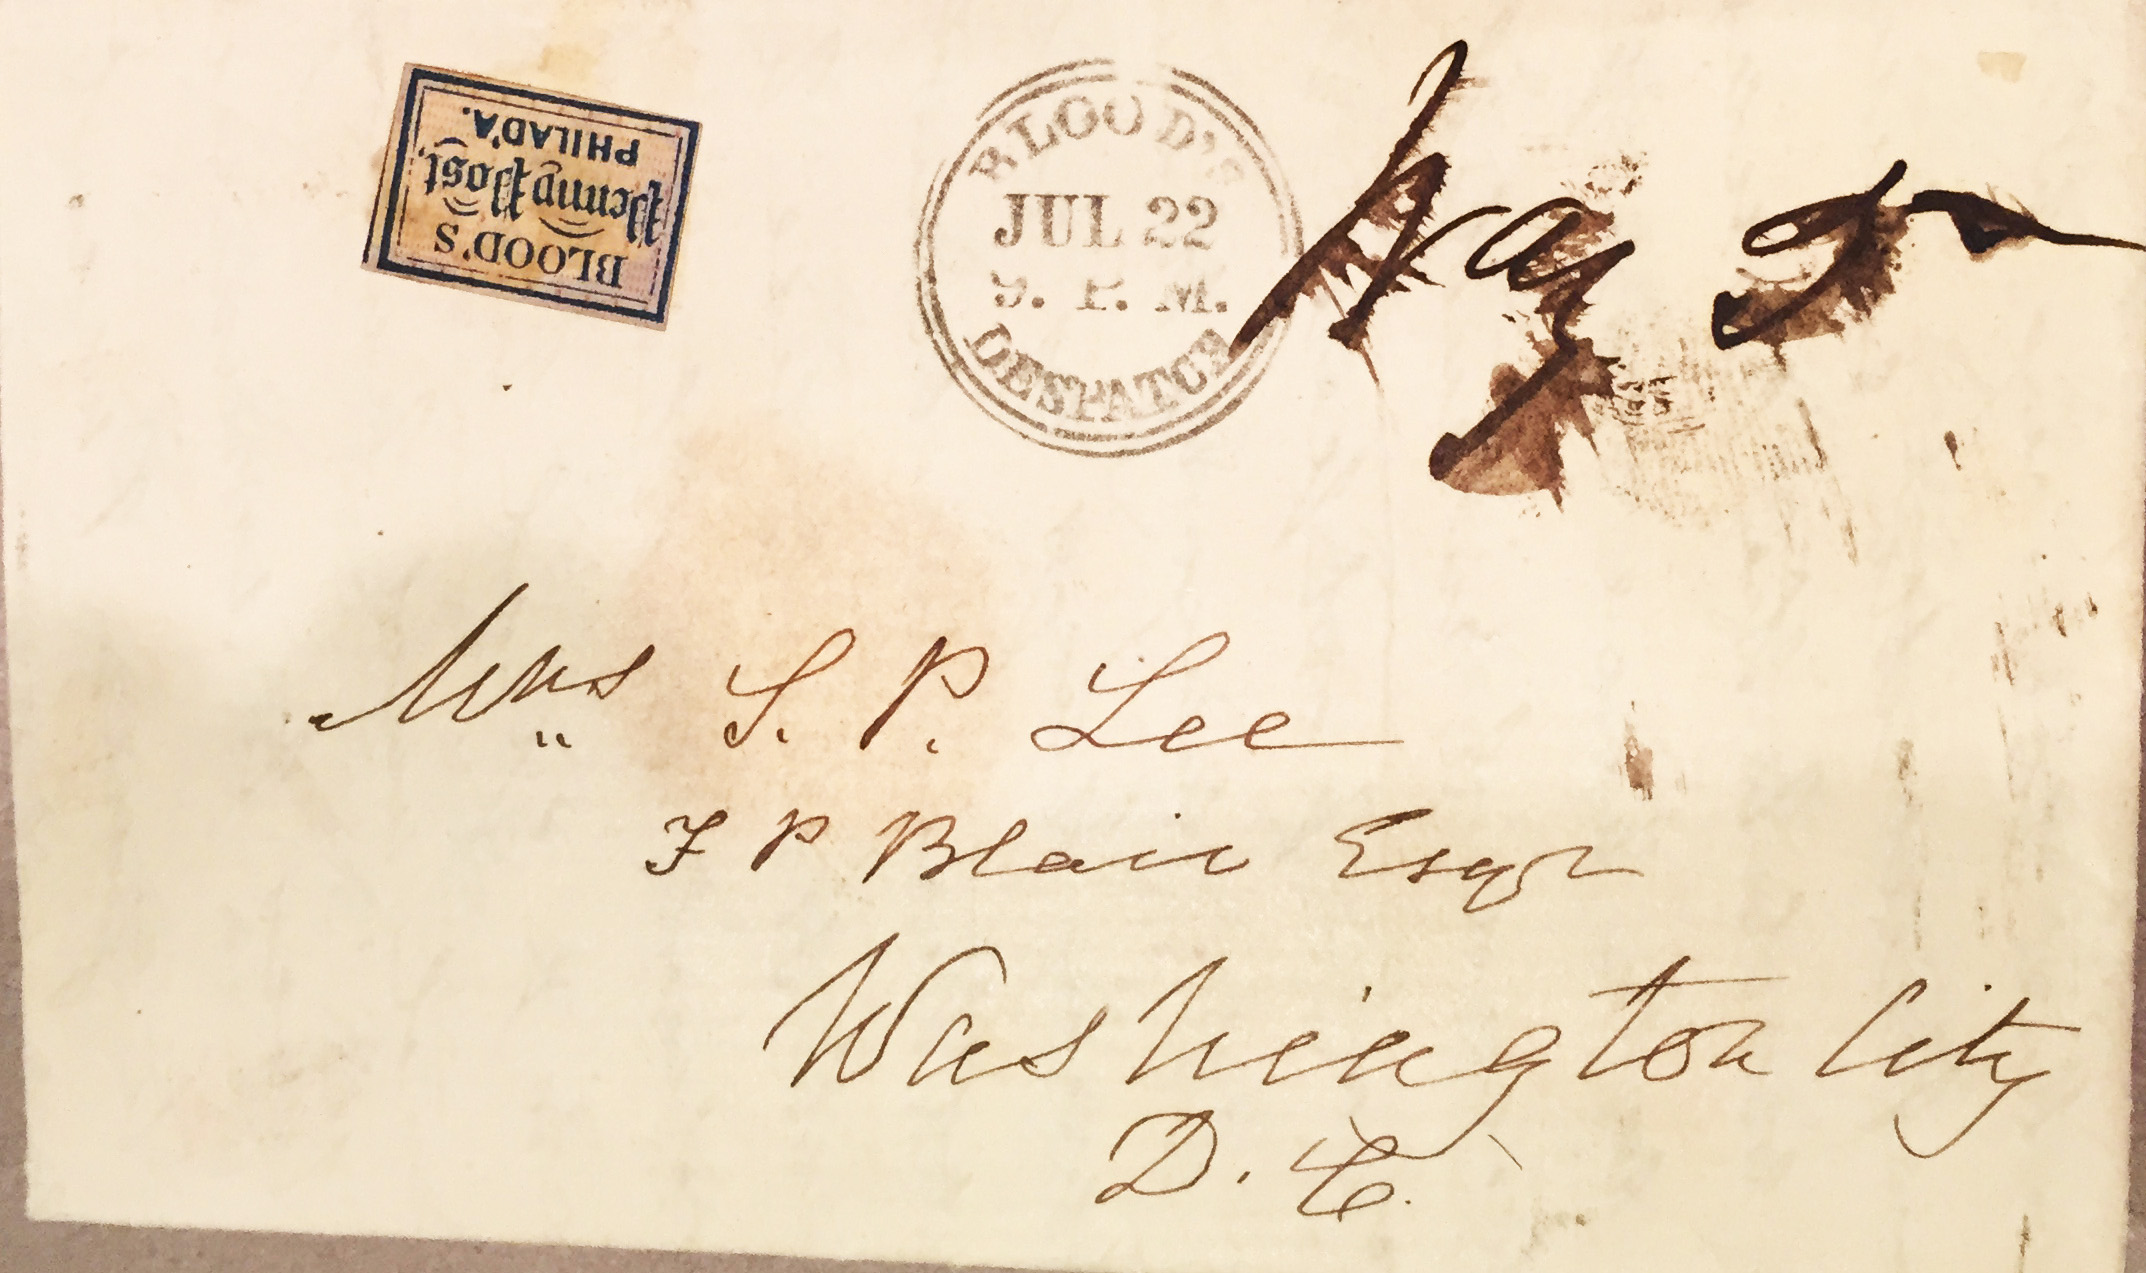 BLOOD'S
Penny Post,
PHILAD'A.
BLOOD'S
JUL 22
P. M.
DESPATCH
Way 5
Mrs S. P. Lee
F P Blair Esqr
Washington City
D. C.